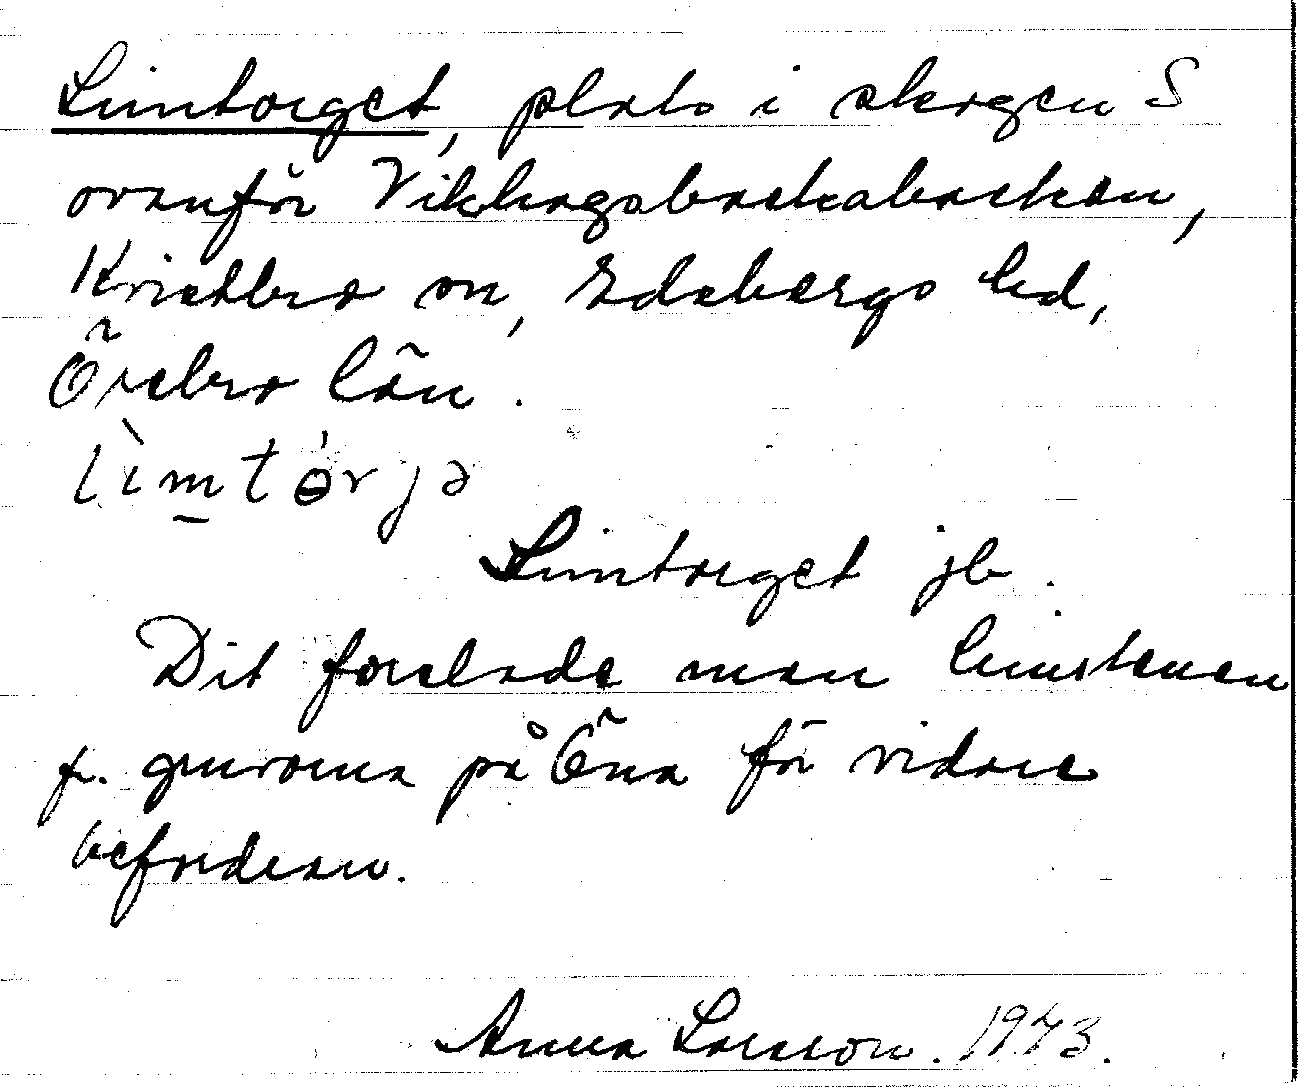 Limtorget, plats i skogen S
ovanför Vikhagsbackabacken,
Kristbro sn, Edsbergs hd,
Örebro län.
lìmtórjə
Limtorget jb.
Dit forslade man limstenen
fr. gruvorna på Öna för vidare
befordran.
Anna Larsson. 1973.